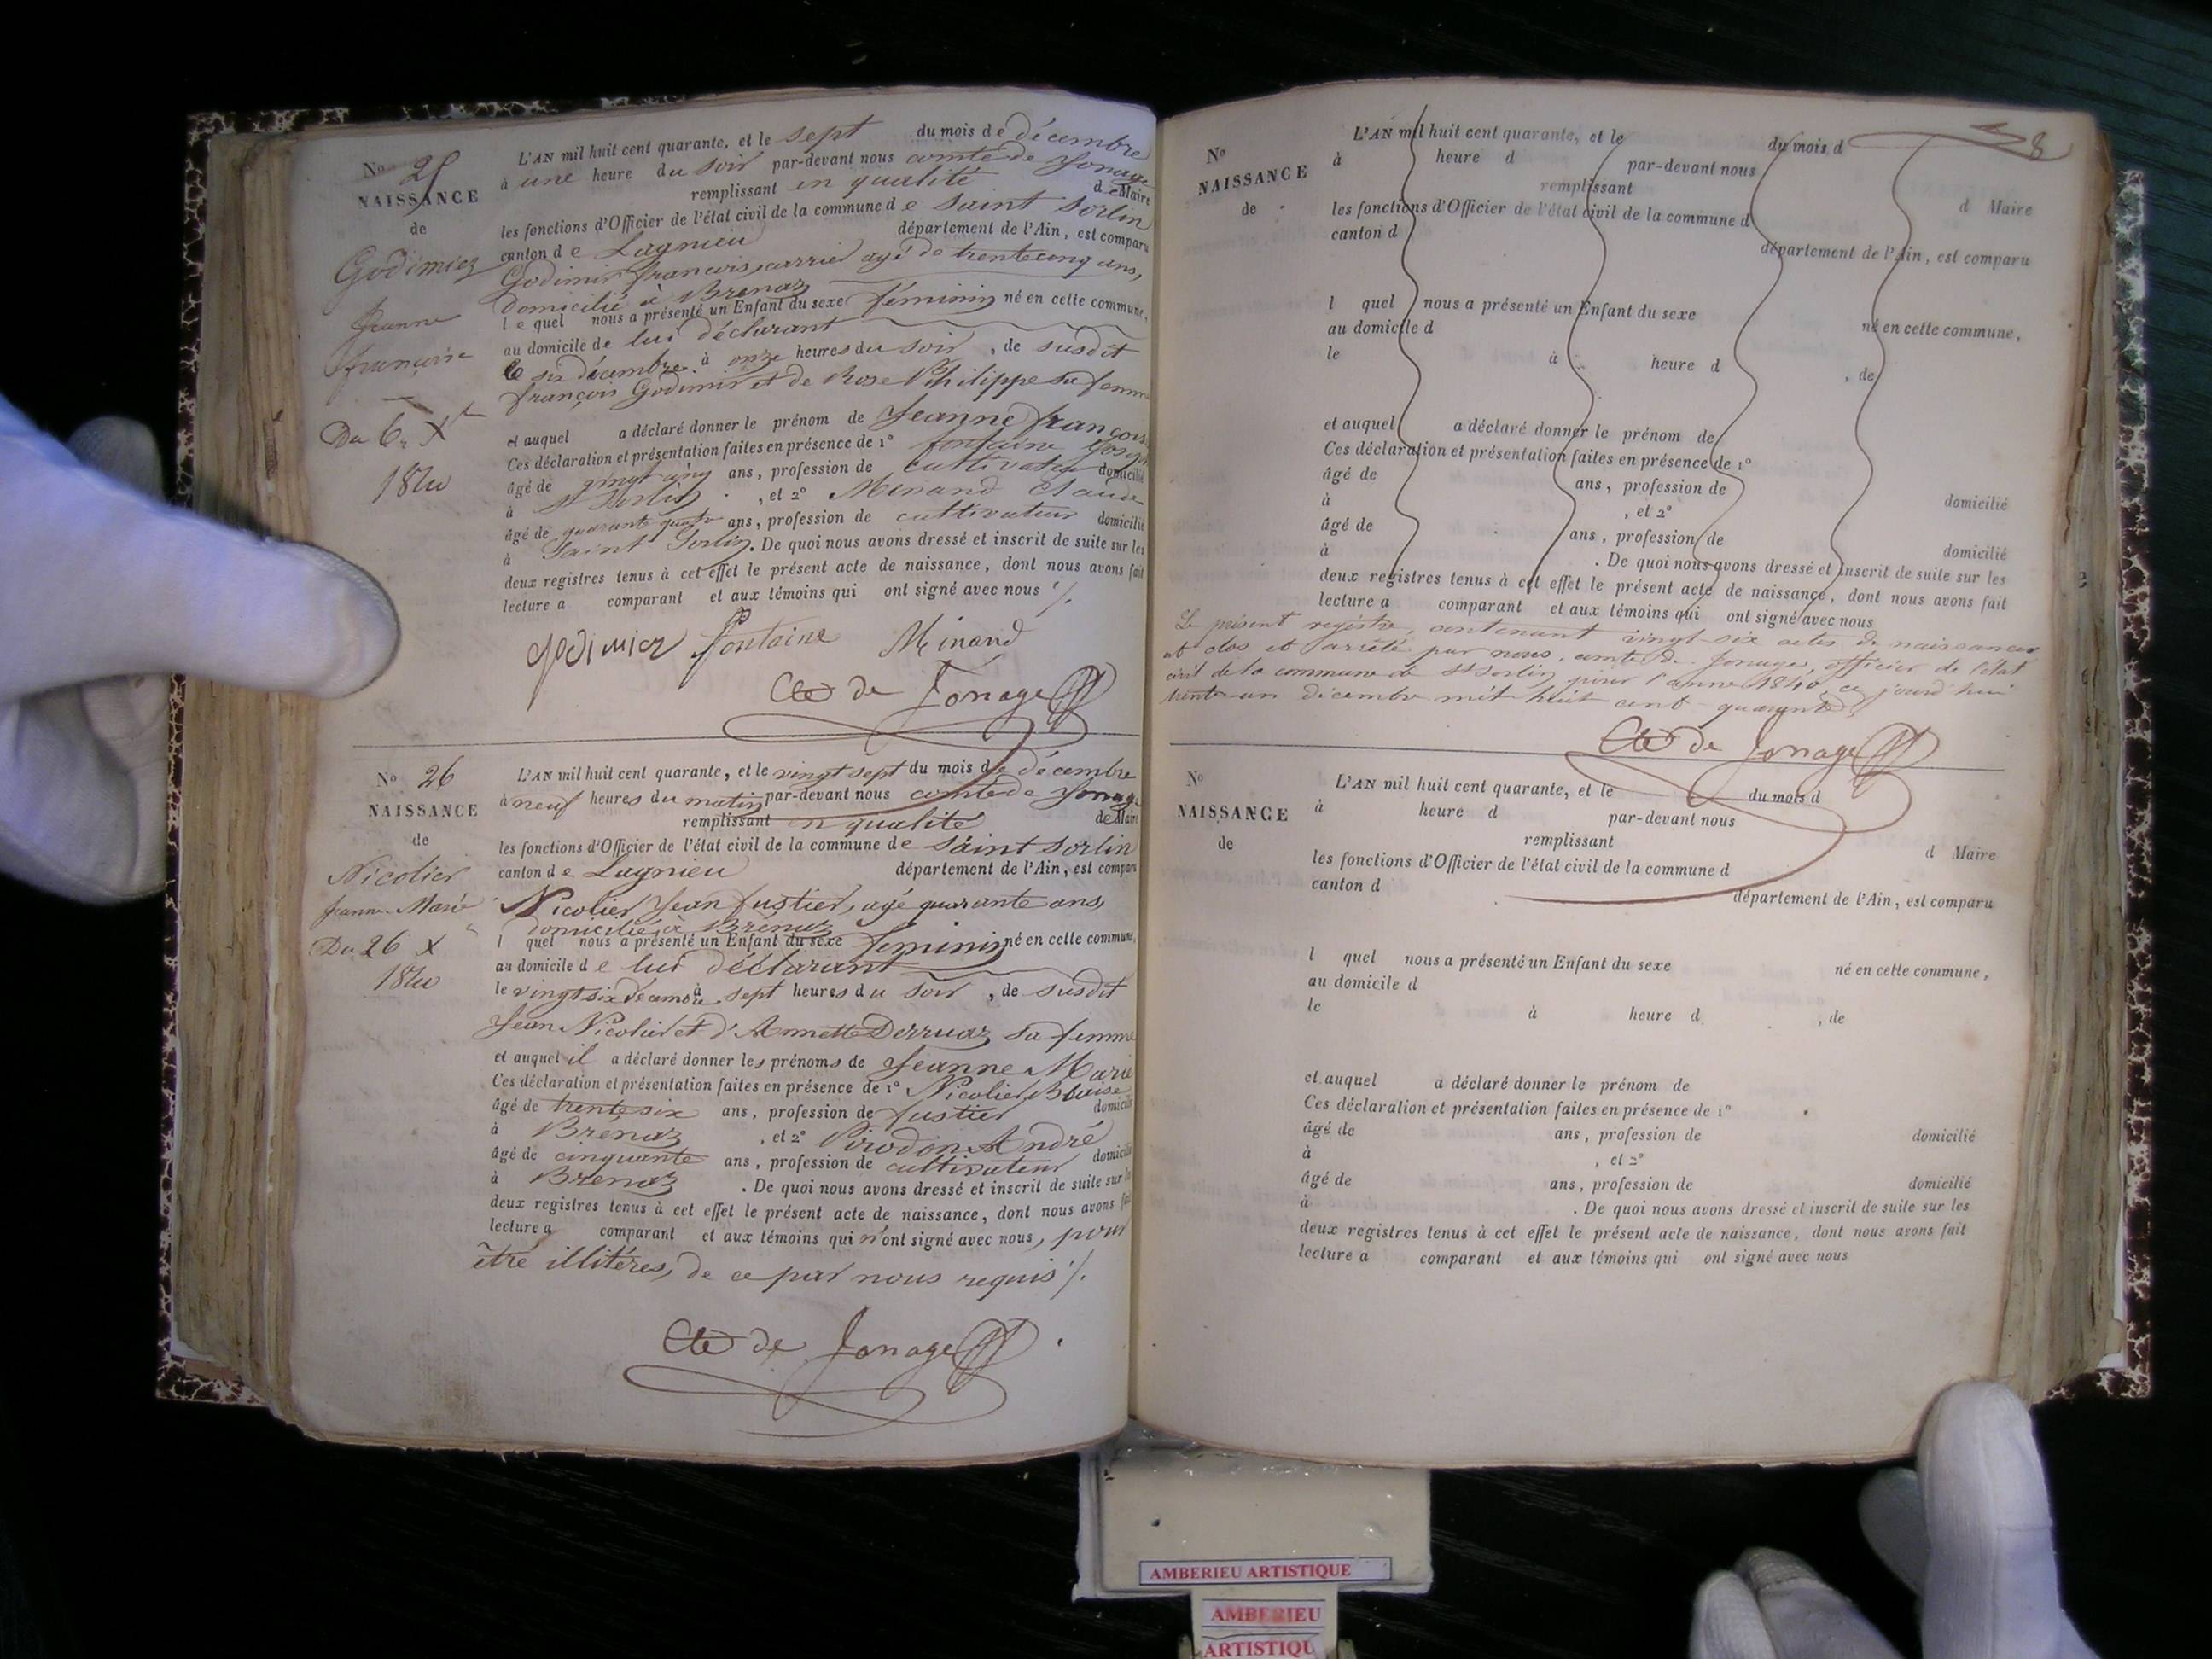 No 25
NAISSANCE
de
Godimier
Jeanne
françoise
Du 6 Xbre
1840
L'AN mil huit cent quarante, et le sept du mois de décembre
à une heure du soir par-devant nous comte de Jonage
remplissant en qualité de Maire
les fonctions d'Officier de l'état civil de la commune de Saint Sorlin
canton de Lagnieu département de l'Ain, est comparu
Godimier francois, carrier agé de trente cinq ans,
domicilié à Brenaz
le quel nous a présenté un Enfant du sexe féminin né en cette commune,
au domicile de lui déclarant
le six décembre à onze heures du soir, de susdit
françois Godimier et de Rose Philippe sa femme
et auquel a déclaré donner le prénom de Jeanne françoise
Ces déclaration et présentation faites en présence de 1° fontaine Joseph
âgé de vingt cinq ans, profession de cultivateur domicilié
à St Sorlin, et 2° Menand Claude
âgé de quarante quatre ans, profession de cultivateur domicilié
à Saint Sorlin. De quoi nous avons dressé et inscrit de suite sur les
deux registres tenus à cet effet le présent acte de naissance, dont nous avons fait
lecture a comparant et aux témoins qui ont signé avec nous ./.
Godimier fontaine Minand
Cte de Jonage
No 26
NAISSANCE
de
Nicolier
Jeanne-Marie
Du 26 X
1840
L'AN mil huit cent quarante, et le vingt sept du mois de décembre
à neuf heures du matin par-devant nous comte de Jonage
remplissant en qualité de Maire
les fonctions d'Officier de l'état civil de la commune de Saint Sorlin
canton de Lagnieu département de l'Ain, est comparu
Nicolier Jean fustier, agé quarante ans,
domicilié à Brénaz
l quel nous a présenté un Enfant du sexe feminin né en cette commune,
au domicile de lui déclarant
le vingt six décembre à sept heures du soir, de susdit
Jean Nicolier et d'Annette Derruaz sa femme
et auquel il a déclaré donner les prénoms de Jeanne Marie
Ces déclaration et présentation faites en présence de 1° Nicolier Blaise
âgé de trente six ans, profession de fustier domicilié
à Brénaz, et 2° Pirodon André
âgé de cinquante ans, profession de cultivateur domicilié
à Brenaz. De quoi nous avons dressé et inscrit de suite sur les
deux registres tenus à cet effet le présent acte de naissance, dont nous avons fait
lecture a comparant et aux témoins qui n'ont signé avec nous, pour
être illitéres, de ce par nous requis ./.
Cte de Jonage
8
No
NAISSANCE
de
L'AN mil huit cent quarante, et le du mois d
à heure d par-devant nous
remplissant d Maire
les fonctions d'Officier de l'état civil de la commune d
canton d département de l'Ain, est comparu
l quel nous a présenté un Enfant du sexe né en cette commune,
au domicile d
le à heure d , de
et auquel a déclaré donner le prénom de
Ces déclaration et présentation faites en présence de 1°
âgé de ans, profession de domicilié
à , et 2°
âgé de ans, profession de domicilié
à . De quoi nous avons dressé et inscrit de suite sur les
deux registres tenus à cet effet le présent acte de naissance, dont nous avons fait
lecture a comparant et aux témoins qui ont signé avec nous
Le présent registre, contenant vingt-six actes de naissances
est clos et arrêté par nous, comte de Jonage, officier de l'état
civil de la commune de St Sorlin pour l'anné 1840, ce jourd'hui
trente-un décembre mil huit cent quarante
Cte de Jonage
No
NAISSANCE
de
L'AN mil huit cent quarante, et le du mois d
à heure d par-devant nous
remplissant d Maire
les fonctions d'Officier de l'état civil de la commune d
canton d département de l'Ain, est comparu
l quel nous a présenté un Enfant du sexe né en cette commune,
au domicile d
le à heure d , de
et auquel a déclaré donner le prénom de
Ces déclaration et présentation faites en présence de 1°
âgé de ans, profession de domicilié
à , et 2°
âgé de ans, profession de domicilié
à . De quoi nous avons dressé et inscrit de suite sur les
deux registres tenus à cet effet le présent acte de naissance, dont nous avons fait
lecture a comparant et aux témoins qui ont signé avec nous
AMBERIEU ARTISTIQUE
AMBERIEU
ARTISTIQU